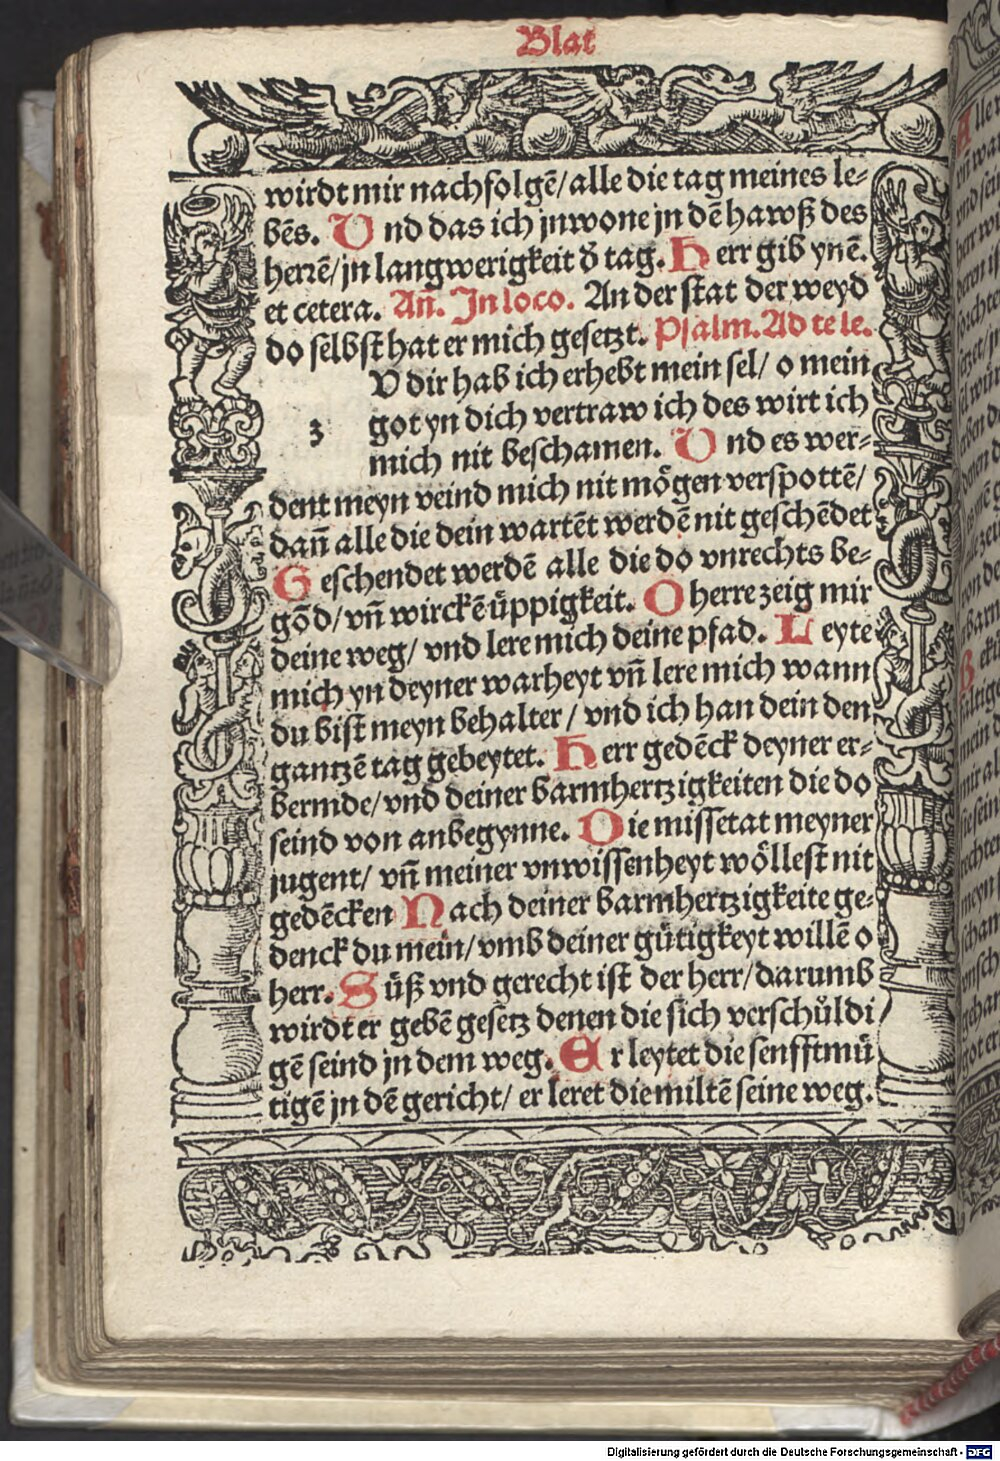 Blat
wirdt mir nachfolgē/ alle die tag meines le-
bēs. Und das ich jnwone jn dē hawß des
herrē/ jn langwerigkeit d̕ tag. Herr gib ynē.
et cetera. Añ. In loco. An der stat der weyd
do selbst hat er mich gesetzt. Psalm. Ad te le.
V dir hab ich erhebt mein sel/ o mein
got yn dich vertraw ich des wirt ich
3
mich nit beschamen. Und es wer-
dent meyn veind mich nit mögen verspottē/
dañ alle die dein wartēt werdē nit geschēdet
Geschendet werdē alle die do vnrechts be-
gōd/ vñ wirckē üppigkeit. O herre zeig mir
deine weg/ vnd lere mich deine pfad. Leyte
mich yn deyner warheyt vñ lere mich wann
du bist meyn behalter/ vnd ich han dein den
gantzē tag gebeytet. Herr gedēck deyner er-
bermde/ vnd deiner barmhertzigkeiten die do
seind von anbegynne. Die missetat meyner
jugent/ vñ meiner vnwissenheyt wöllest nit
gedēcken Nach deiner barmhertzigkeite ge-
denck du mein/ vmb deiner gütigkeyt willē o
herr. Süß vnd gerecht ist der herr/ darumb
wirdt er gebē gesetz denen die sich verschůldi
gē seind jn dem weg. Er leytet die senfftmü
tigē jn dē gericht/ er leret die miltē seine weg.
Digitalisierung gefördert durch die Deutsche Forschungsgemeinschaft - DFG